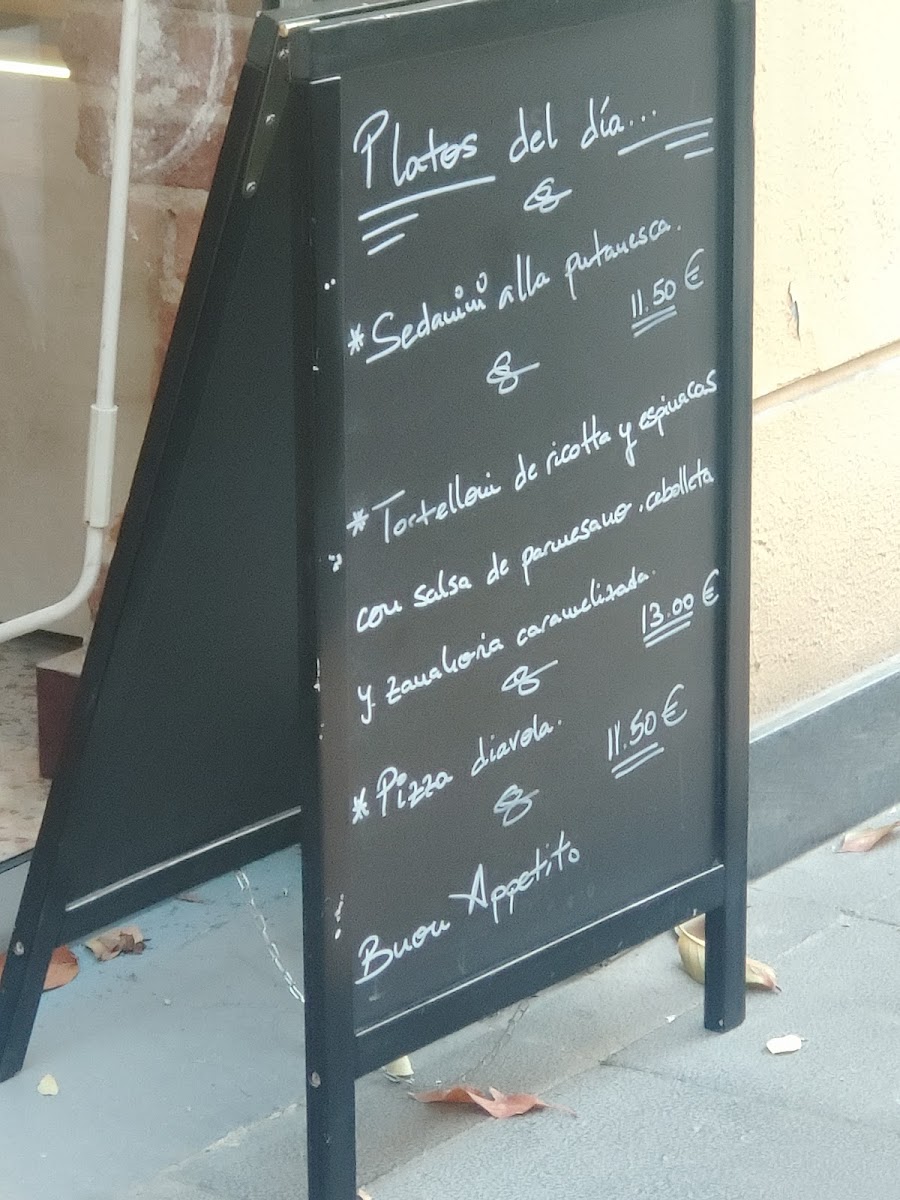 Platos del día...
*Sedanini alla putanesca.
11.50 €
*Tortelloni de ricotta y espinacas
con salsa de parmesano, cebolleta
y zanahoria caramelizada.
13.00 €
*Pizza diavola.
11.50 €
Buon Appetito